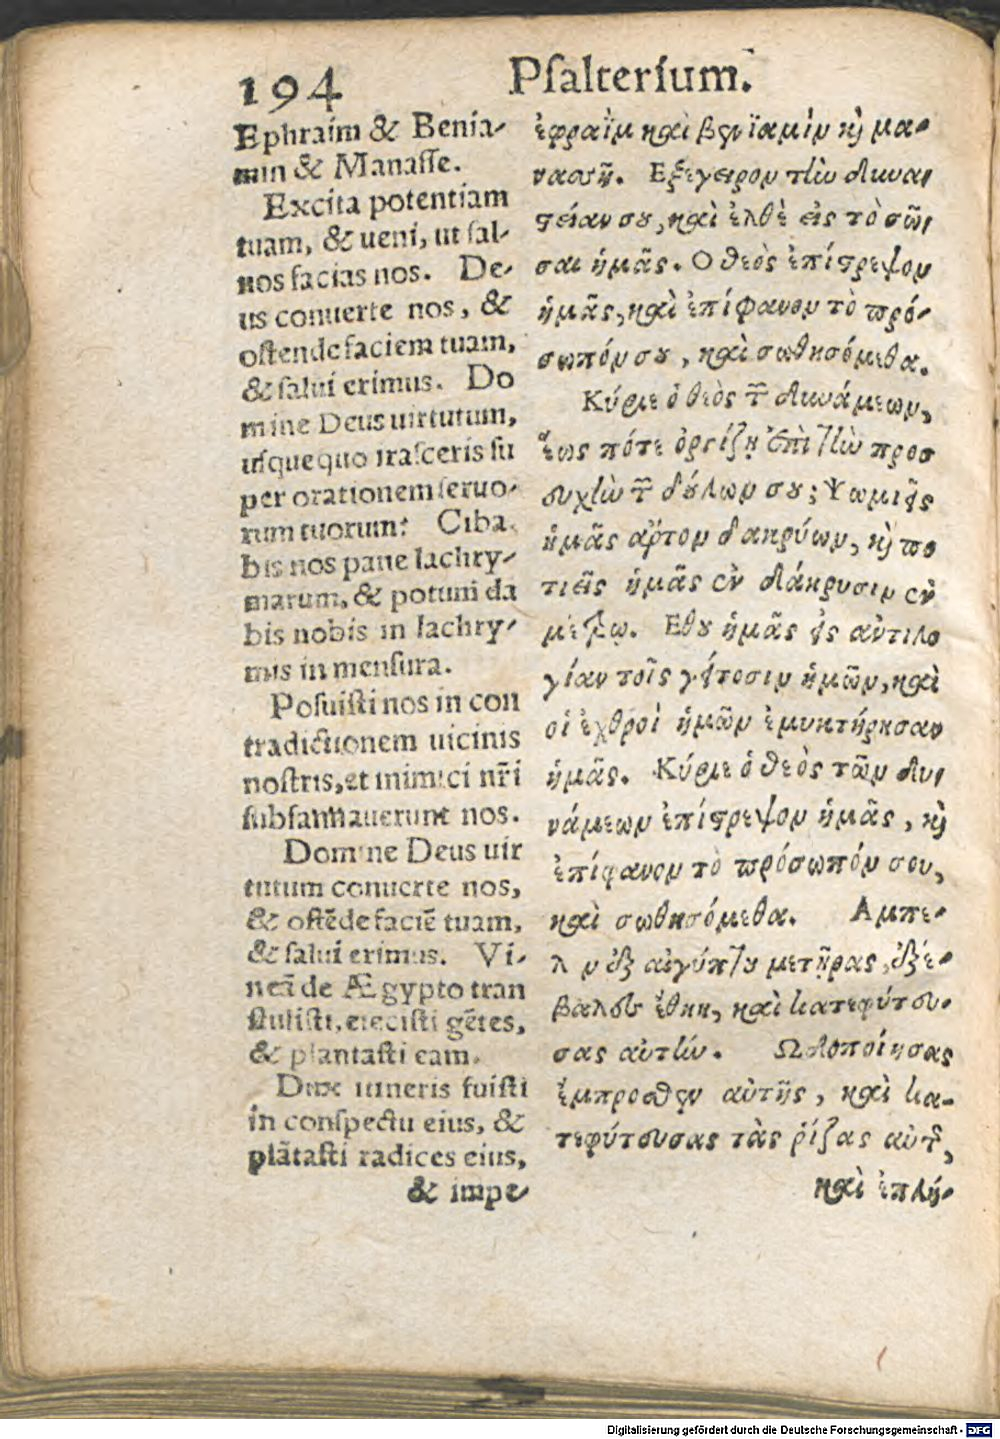 194 Psalterium.
Ephraim & Benia-
min & Manasse.
Excita potentiam
tuam, & ueni, ut sal-
uos facias nos. De-
us conuerte nos, &
ostende faciem tuam,
& salui erimus. Do
mine Deus uirtutum,
usquequo irasceris su
per orationem seruo-
rum tuorum? Ciba
bis nos pane lachry-
marum, & potum da
bis nobis in lachry-
mis in mensura.
Posuisti nos in con
tradictionem uicinis
nostris, et inimici nr̃i
subsannauerunt nos.
Domine Deus uir
tutum conuerte nos,
& ostẽde faciẽ tuam,
& salui erimus. Vi-
neã de Ægypto tran
stulisti, eiecisti gẽtes,
& plantasti eam.
Dux itineris fuisti
in conspectu eius, &
plãtasti radices eius,
& imple-
ἐφραΐμ καὶ βενϊαμὶν κ̀ μα-
νασσῆ. Εξέγειρον τὴν δυνα-
στείαν σου, καὶ ἐλθὲ εἰς τὸ σῶ-
σαι ἡμᾶς. Ο θεὸς ἐπίστρεψον
ἡμᾶς, καὶ ἐπίφανον τὸ πρό-
σωπόν σου, καὶ σωθησόμεθα.
Κύριε ὁ θεὸς τῶν δυνάμεων,
ἕως πότε ὀργίζῃ ἐπὶ τὴν προσ
ευχὴν τῶν δούλων σου; Ψωμιεῖς
ἡμᾶς ἄρτον δακρύων, κ̀ πο
τιεῖς ἡμᾶς ἐν δάκρυσιν ἐν
μέτρῳ. Εθου ἡμᾶς εἰς ἀντιλο
γίαν τοῖς γείτοσιν ἡμῶν, καὶ
οἱ ἐχθροὶ ἡμῶν ἐμυκτήρησαν
ἡμᾶς. Κύριε ὁ θεὸς τῶν δυ-
νάμεων ἐπίστρεψον ἡμᾶς, κ̀
ἐπίφανον τὸ πρόσωπόν σου,
καὶ σωθησόμεθα. Αμπε-
λον ἐξ αἰγύπτου μετῆρας, ἐξέ-
βαλες ἔθνη, καὶ κατεφύτευ-
σας αὐτήν. Ωδοποίησας
ἔμπροσθεν αὐτῆς, καὶ κα-
τεφύτευσας τὰς ῥίζας αὐτῆς,
καὶ ἐπλή-
Digitalisierung gefördert durch die Deutsche Forschungsgemeinschaft - DFG